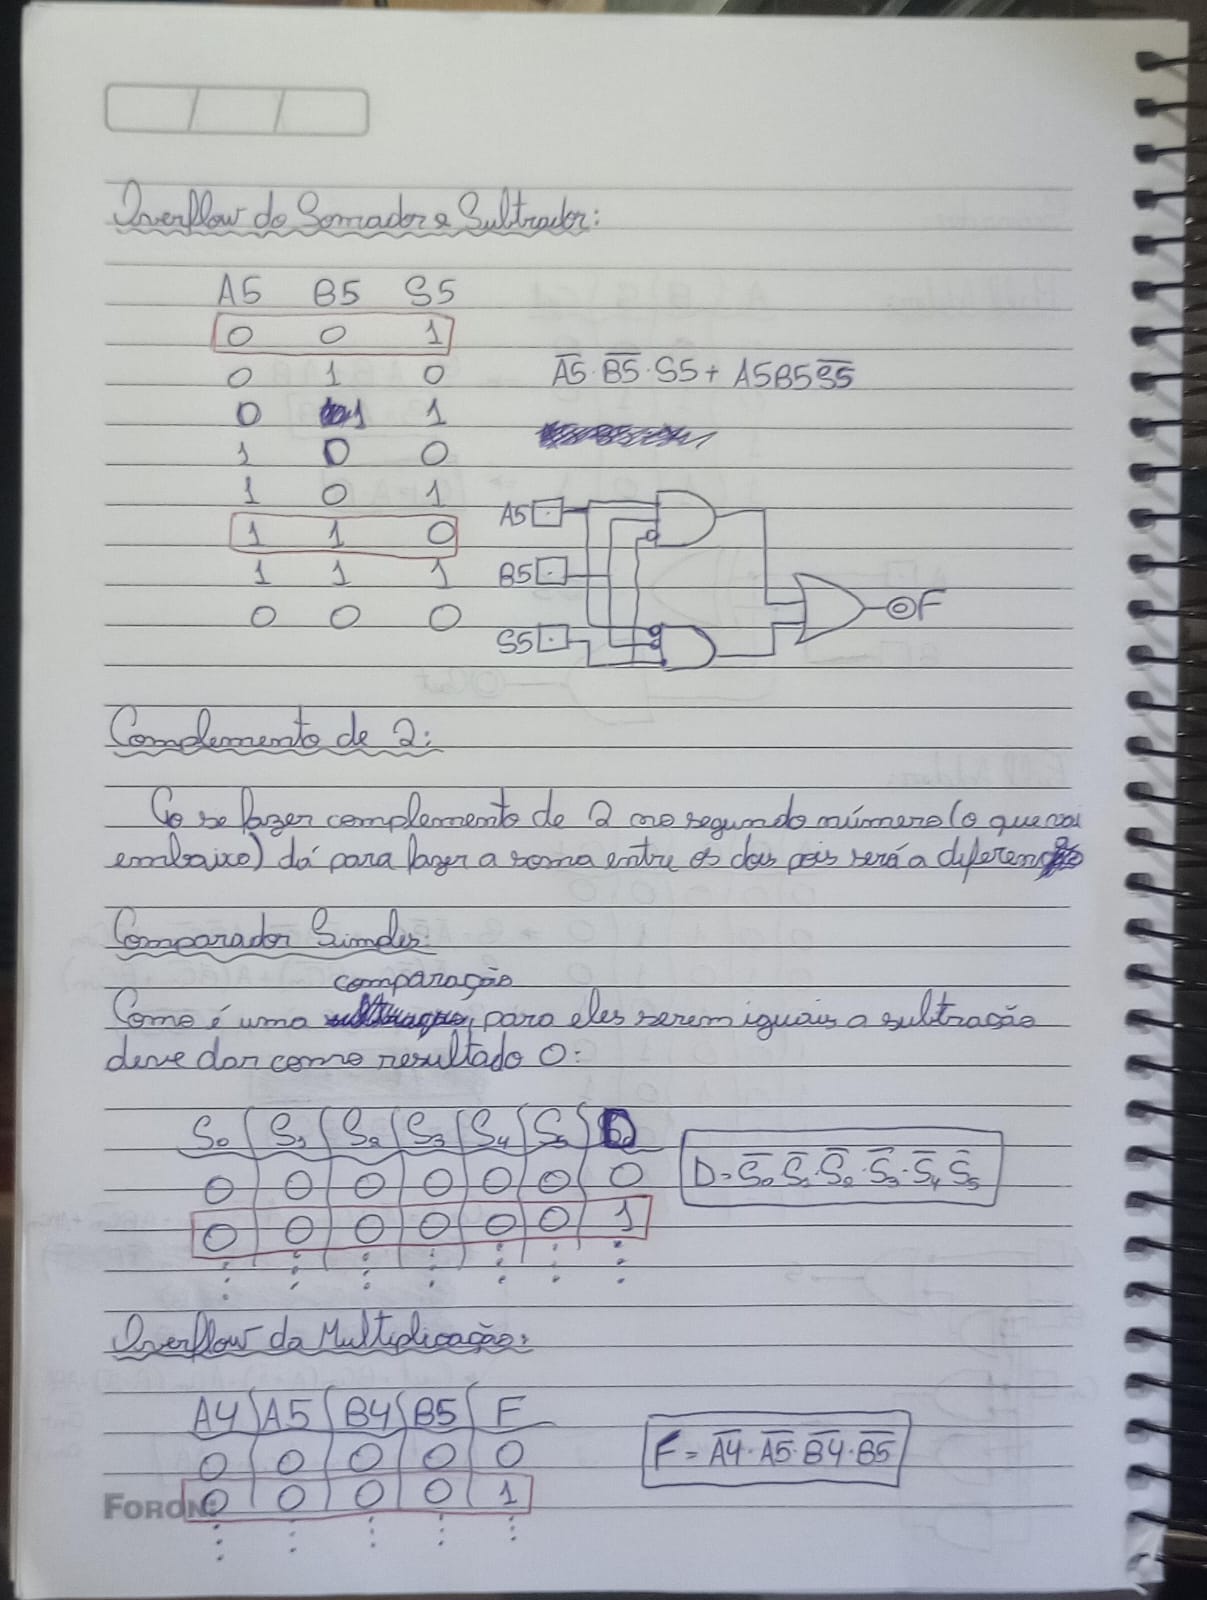 Overflow do Somador e Subtrador:
A5 B5 S5
0 0 1
0 1 0
0 1 1
1 0 0
1 0 1
1 1 0
1 1 1
0 0 0
A̅5̅ · B̅5̅ · S5 + A5B5S̅5̅
A5
B5
S5
F
Complemento de 2:
Ao se fazer complemento de 2 no segundo número (o que vai
embaixo) dá para fazer a soma entre os dois pois será a diferença
Comparador Simples:
comparação
Como é uma, para eles serem iguais a subtração
deve dar como resultado 0:
S₀ S₁ S₂ S₃ S₄ S₅ D
0 0 0 0 0 0 0
0 0 0 0 0 0 1
D = S̅₀ S̅₁ · S̅₂ · S̅₃ · S̅₄ S̅₅
Overflow da Multiplicação:
A4 A5 B4 B5 F
0 0 0 0 0
0 0 0 0 1
F = A̅4̅ · A̅5̅ · B̅4̅ · B̅5̅
FORONI